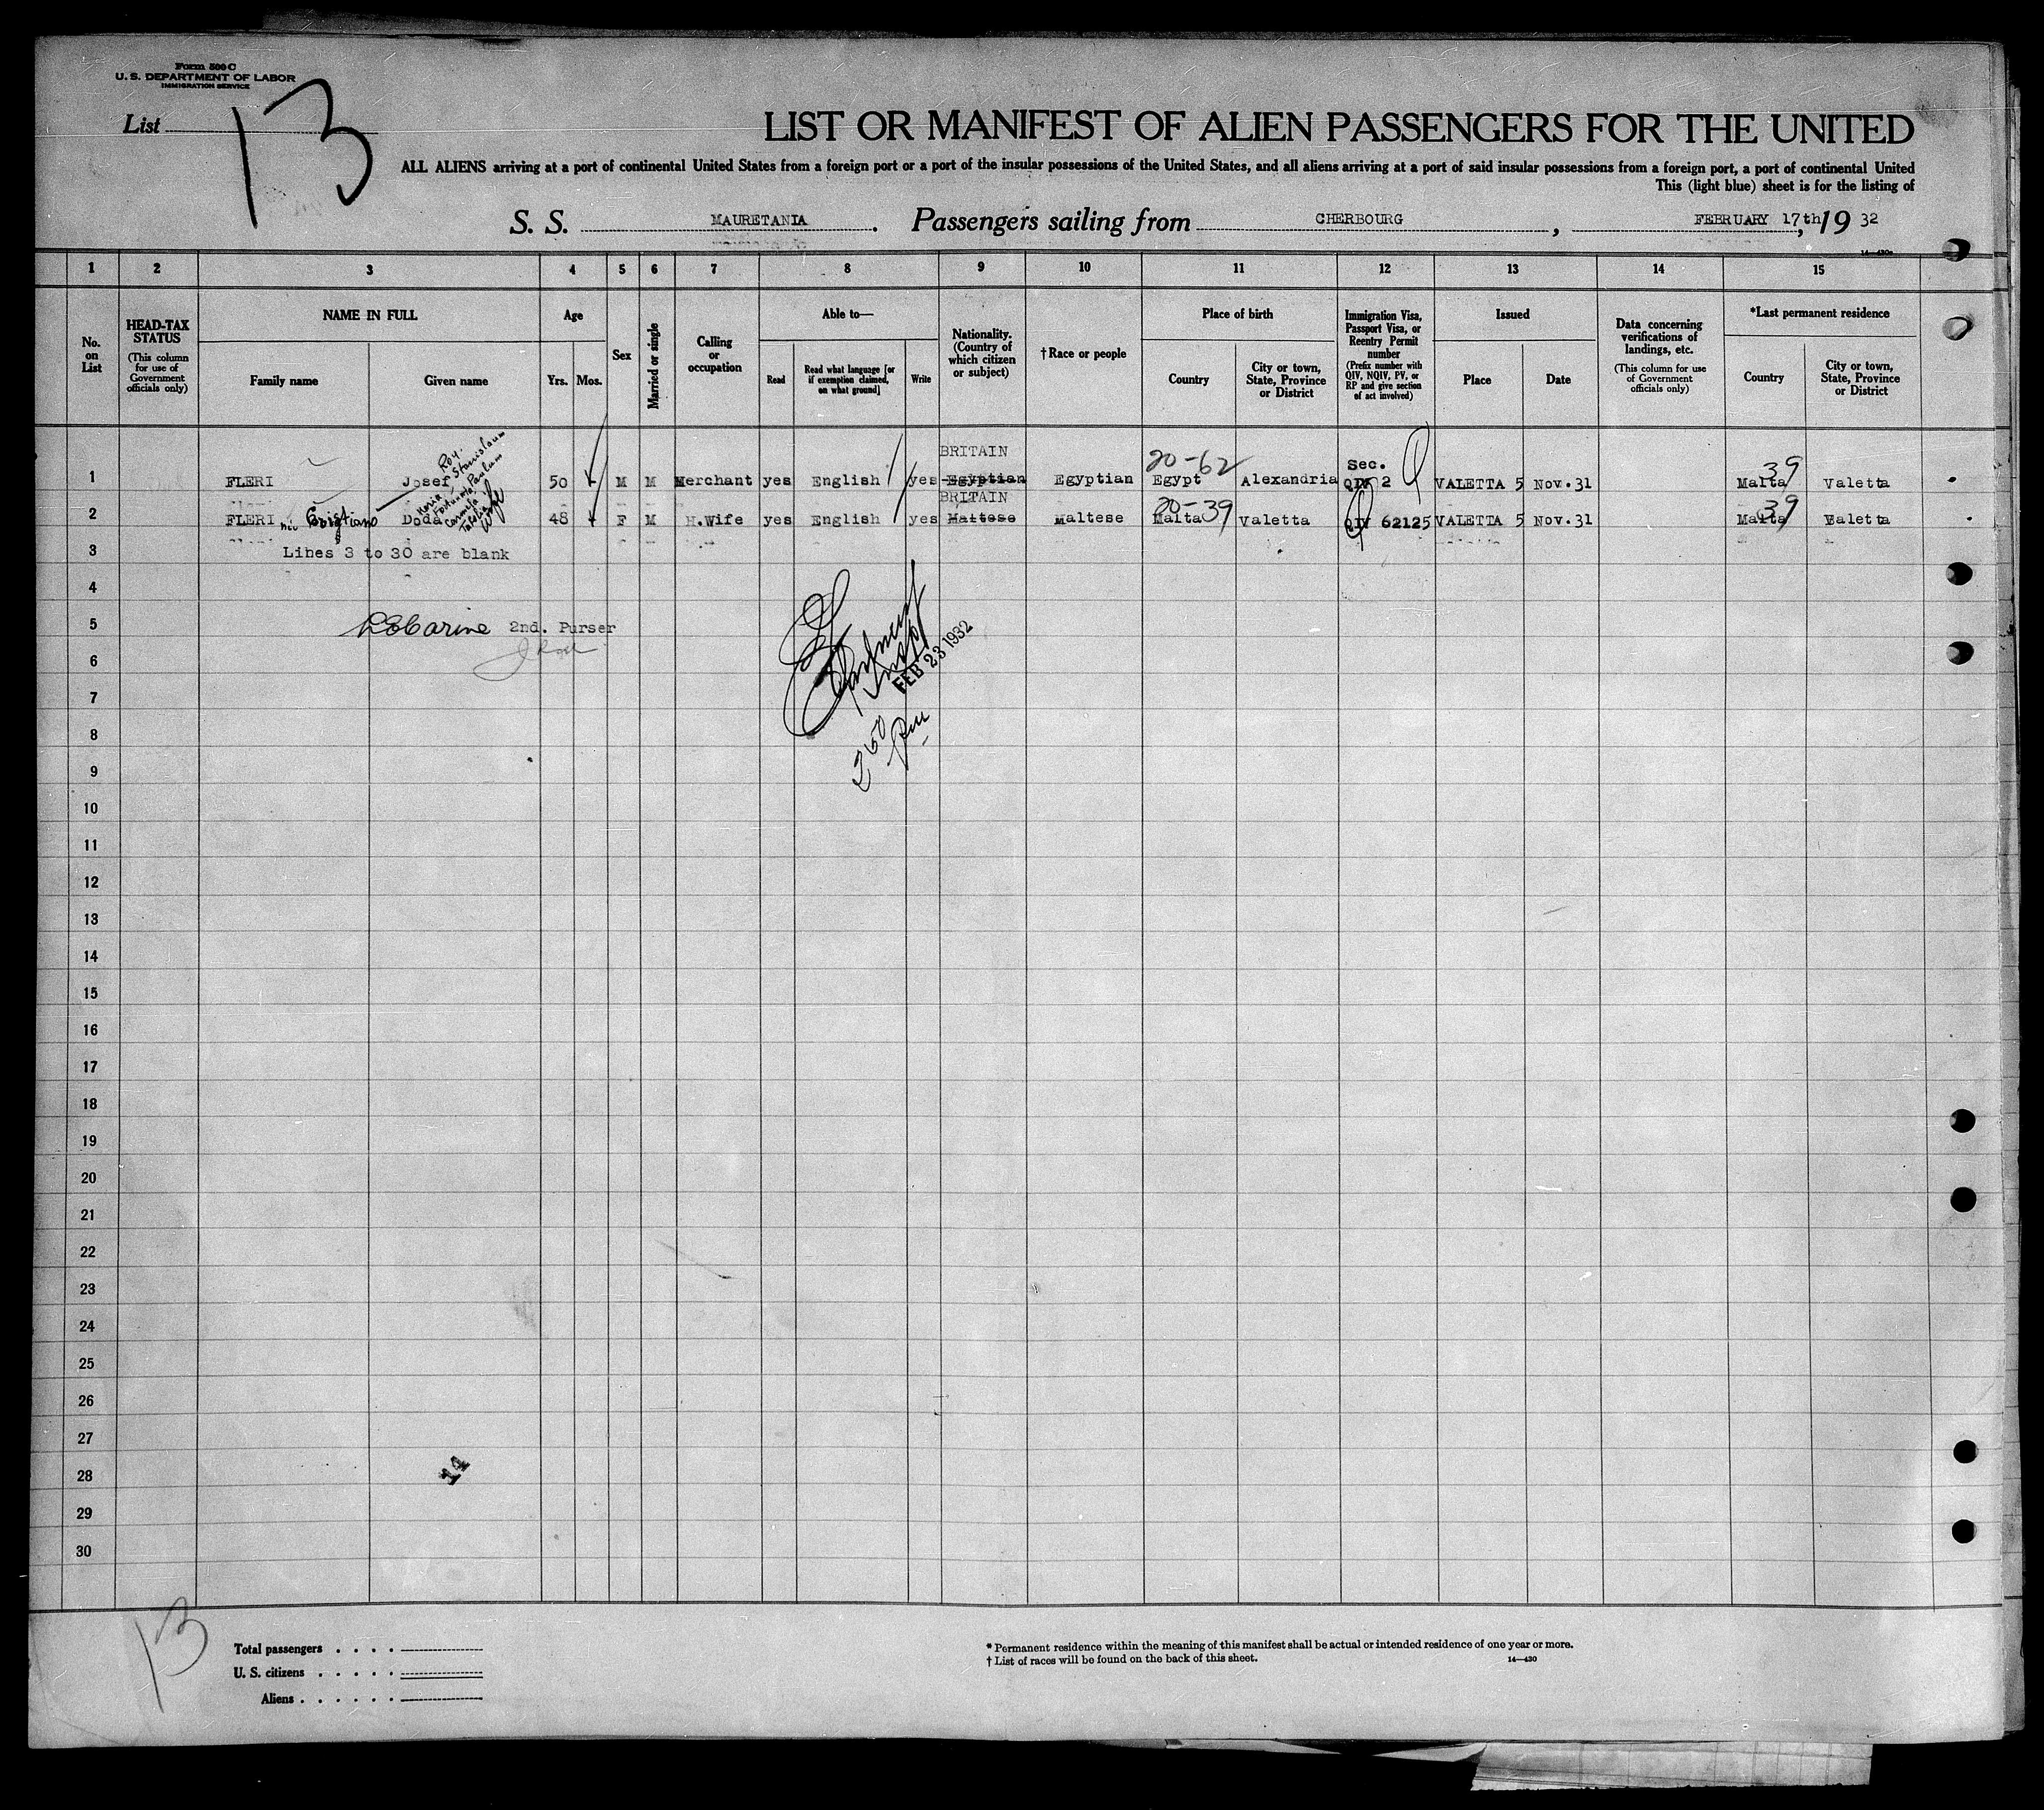 Form 500 C
U. S. DEPARTMENT OF LABOR
IMMIGRATION SERVICE
List 13
LIST OR MANIFEST OF ALIEN PASSENGERS FOR THE UNITED
ALL ALIENS arriving at a port of continental United States from a foreign port or a port of the insular possessions of the United States, and all aliens arriving at a port of said insular possessions from a foreign port, a port of continental United
This (light blue) sheet is for the listing of
S. S. MAURETANIA. Passengers sailing from CHERBOURG, FEBRUARY 17th, 19 32
14—430a
1 2 3 4 5 6 7 8 9 10 11 12 13 14 15
No. on List
HEAD-TAX STATUS
(This column for use of Government officials only)
NAME IN FULL
Family name
Given name
Age
Yrs. Mos.
Sex
Married or single
Calling or occupation
Able to—
Read
Read what language [or if exemption claimed, on what ground]
Write
Nationality. (Country of which citizen or subject)
†Race or people
Place of birth
Country
City or town, State, Province or District
Immigration Visa, Passport Visa, or Reentry Permit number
(Prefix number with QIV, NQIV, PV, or RP and give section of act involved)
Issued
Place
Date
Data concerning verifications of landings, etc.
(This column for use of Government officials only)
*Last permanent residence
Country
City or town, State, Province or District
Roy. Stanislaum
BRITAIN
20-62
Sec.
39
1 FLERI Josef 50 M M Merchant yes English yes Egyptian Egyptian Egypt Alexandria QIV 2 VALETTA 5 Nov. 31 Malta Valetta
Maria Fortunata Paulum Carmela
wife
BRITAIN
20-39
39
2 FLERI Doda 48 F M H.Wife yes English yes Maltese Maltese Malta Valetta QIV 62125 VALETTA 5 Nov. 31 Malta Valetta
3 Lines 3 to 30 are blank
4
5 2nd. Purser
6
FEB 23 1932
7
8
250 pm
9
10
11
12
13
14
15
16
17
18
19
20
21
22
23
24
25
26
27
28 14
29
30
13
Total passengers . . . .
U. S. citizens . . . . .
Aliens . . . . . .
* Permanent residence within the meaning of this manifest shall be actual or intended residence of one year or more.
† List of races will be found on the back of this sheet. 14—430